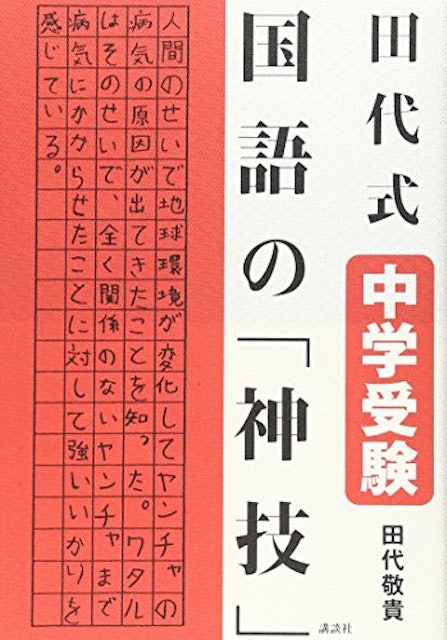 田代式
中学受験
田代敬貴
国語の「神技」
講談社
人間のせいで地球環境が変化してヤンチャの
病気の原因が出てきたことを知った。ワタル
はそのせいで、全く関係のないヤンチャまで
病気にかからせたことに対して強いいかりを
感じている。